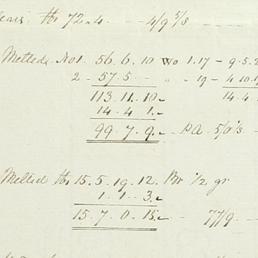 72..4 .. 4/9 5/8
Melted No1. 56.6.10 Wo 1.17 - 9.5.
2 - 57.5 - " 19 - 4.10.
113.11.10 14.4
14.4.1
99.7.9 PA 5/0's -
Melted lbs 15.5.19.12. Br 1/2 gr
1.1.3
15.7.0.15 - 77/9 -